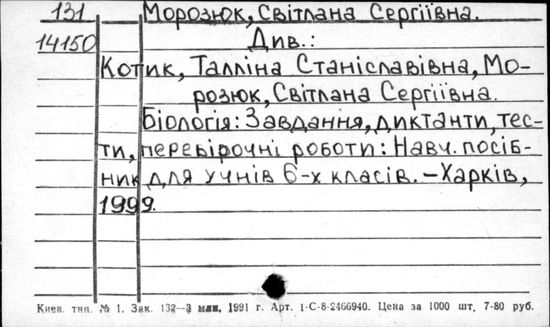 131 Морозюк, Світлана Сергіївна.
14150 Див.:
Котик, Талліна Станіславівна, Мо-
розюк, Світлана Сергіївна.
Біологія: Завдання, диктанти, тес-
ти, перевірочні роботи: Навч. посіб-
ник для учнів 6-х класів. – Харків,
1999.
Киев. тип. № 1. Зак. 132—3 млн. 1991 г. Арт. 1-С-8-2466940. Цена за 1000 шт. 7-80 руб.